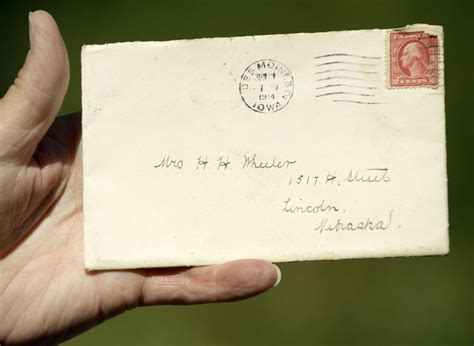 DES MOINES
1914
IOWA
2 CENTS 2
Mrs H H Wheeler
1517 H. Street
Lincoln,
Nebraska.